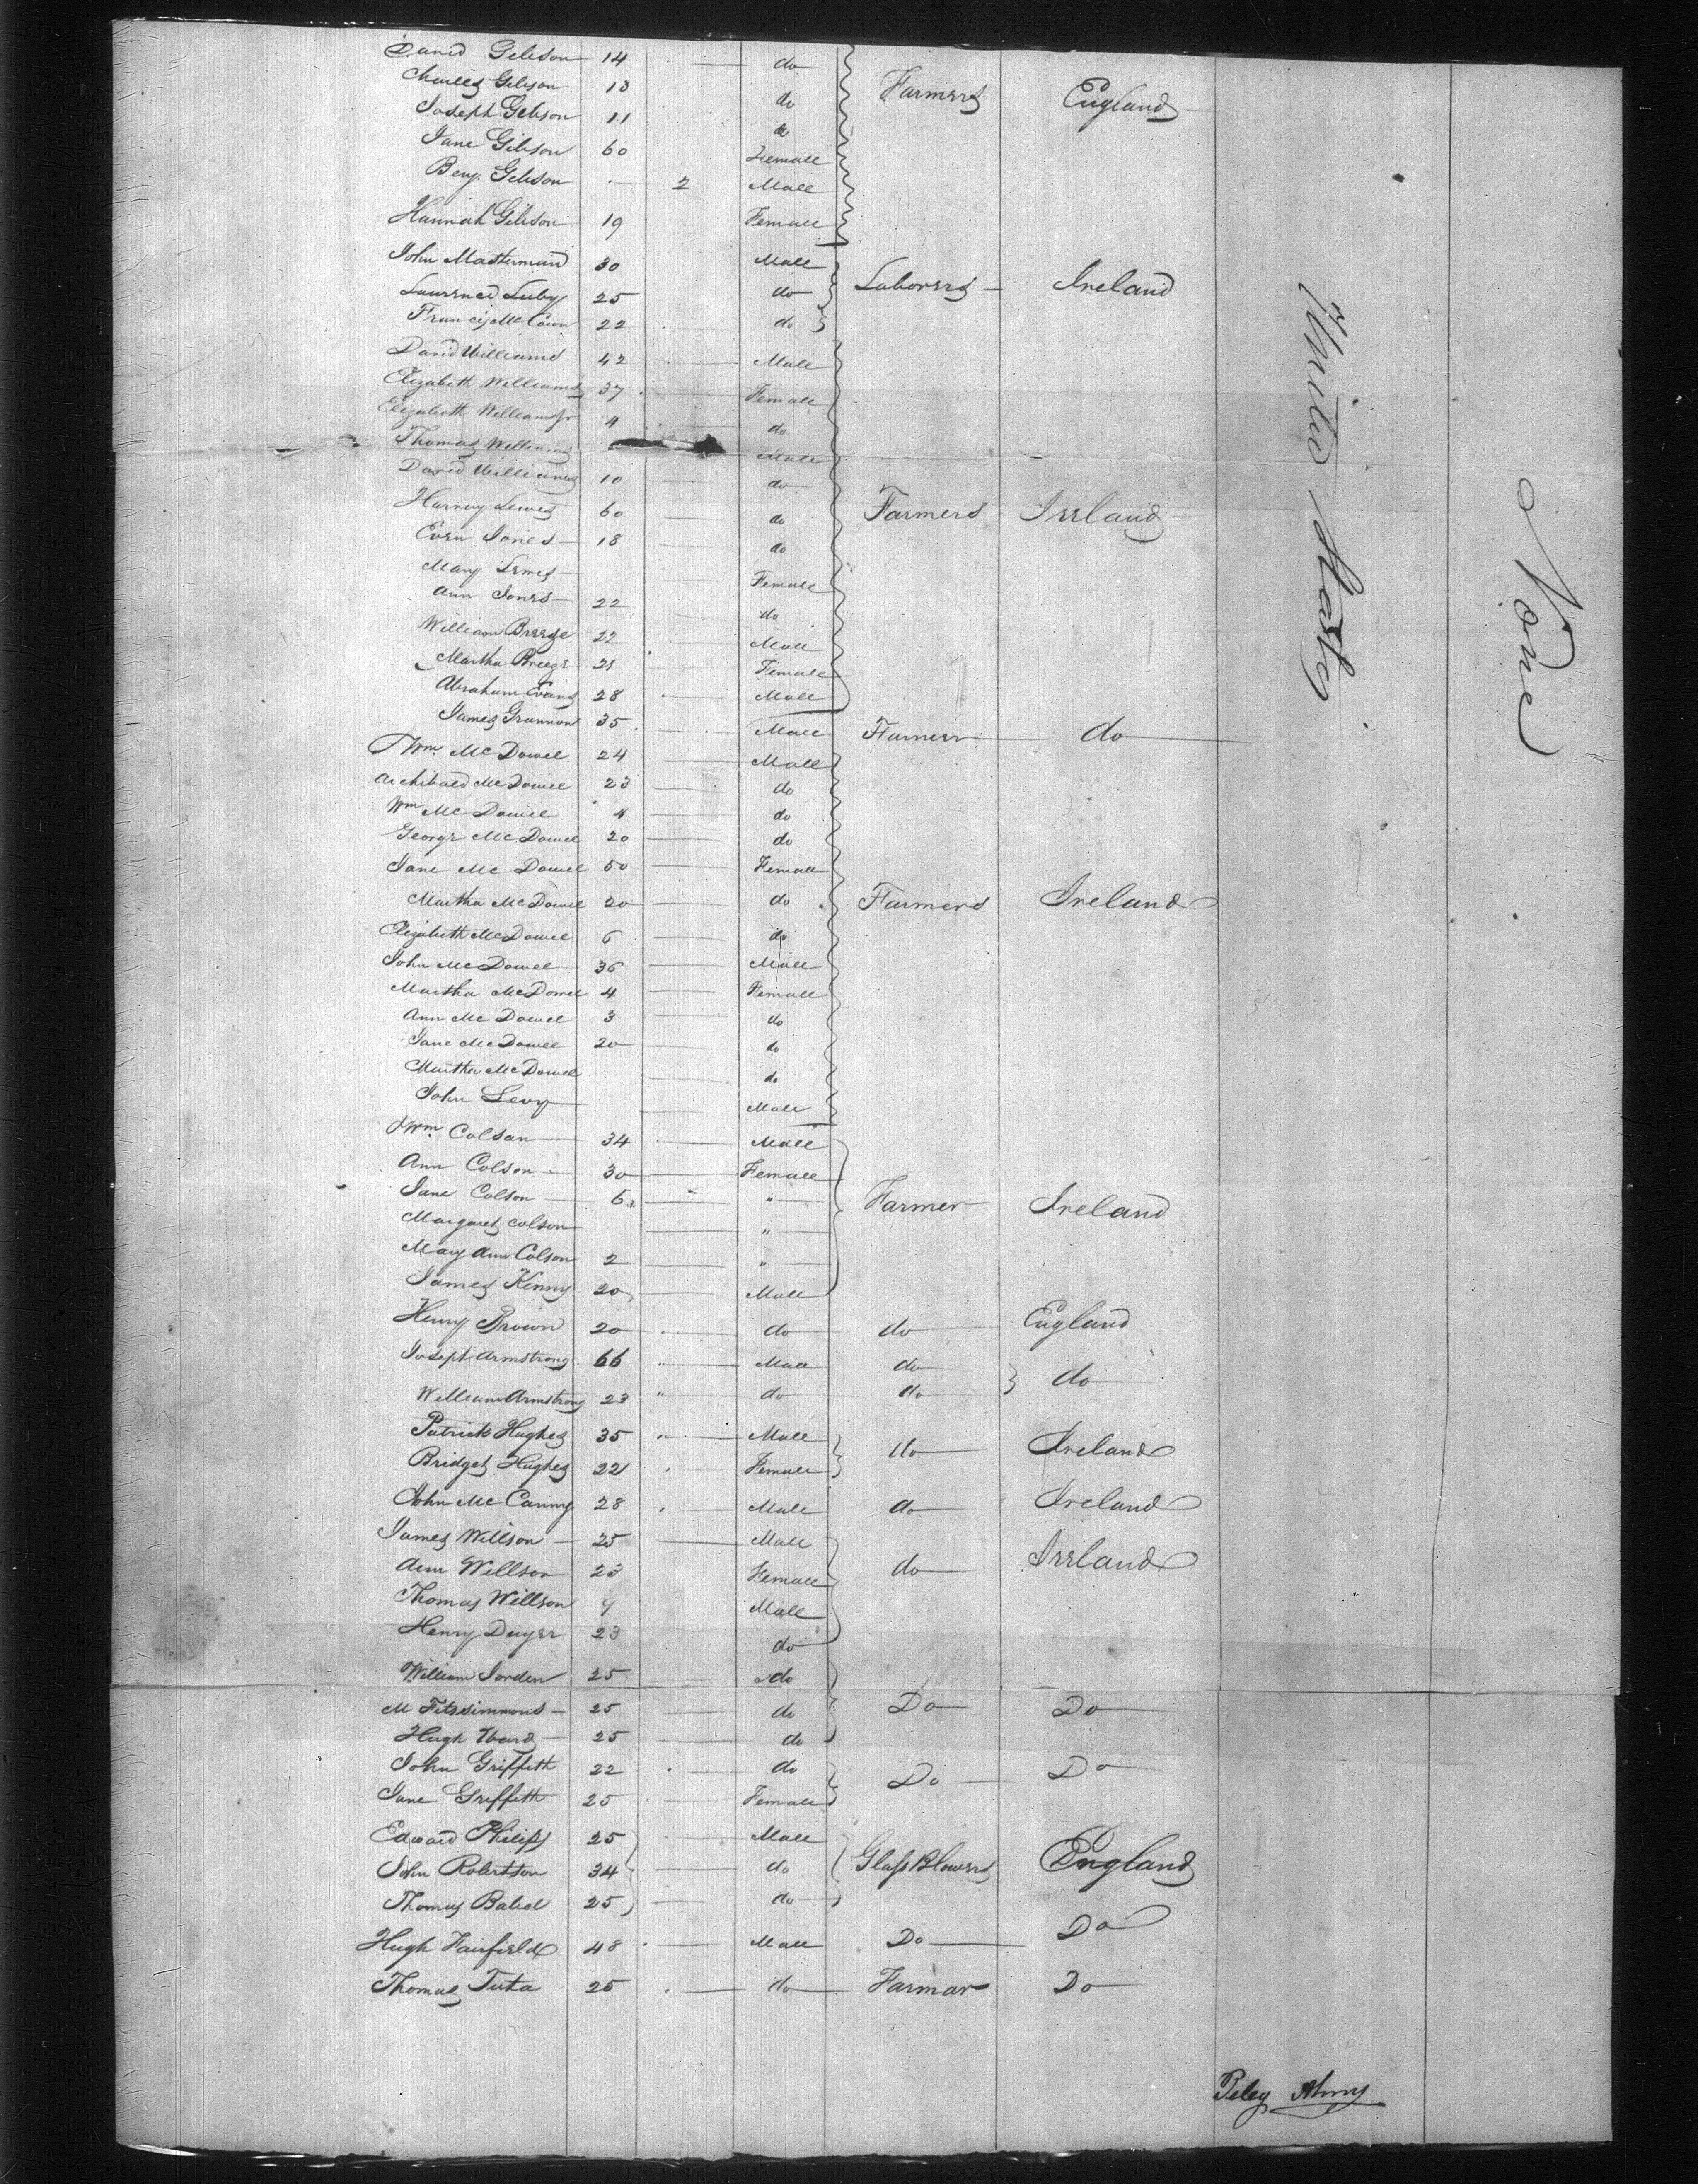 David Gibson 14 do
Charles Gibson 13 do Farmers England
Joseph Gibson 11 do
Jane Gibson 60 Female
Benj. Gibson 2 Male
Hannah Gibson 19 Female
John Masterman 30 Male
Lawrence Luby 25 do Laborers Ireland
Francis McCown 22 do
David Williams 42 Male
Elizabeth Williams 37 Female
Elizabeth Williams Jr 4 do
Thomas Williams Male
David Williams 10 do
Harvey Lewis 60 do Farmers Ireland
Even Jones 18 do
Mary Lewis Female
Ann Jones 22 do
William Breeze 22 Male
Martha Breeze 21 Female
Abraham Evans 28 Male
James Grannon 35 Male Farmer do
Wm McDowel 24 Male
Archibald McDowel 23 do
Wm McDowel 4 do
George McDowel 20 do
Jane McDowel 50 Female
Martha McDowel 20 do Farmers Ireland
Elizabeth McDowel 6 do
John McDowel 36 Male
Martha McDowel 4 Female
Ann McDowel 3 do
Jane McDowel 20 do
Martha McDowel do
John Levy Male
Wm Colson 34 Male
Ann Colson 30 Female
Jane Colson 6 " Farmer Ireland
Margaret Colson "
Mary Ann Colson 2 "
James Kenny 20 Male
Henry Brown 20 do do England
Joseph Armstrong 66 Male do do
William Armstrong 23 do do
Patrick Hughes 35 Male do Ireland
Bridget Hughes 22 Female
John McCanny 28 Male do Ireland
James Willson 25 Male
Ann Willson 23 Female do Ireland
Thomas Willson 9 Male
Henry Duyer 23 do
William Jorden 25 do
M Fitzsimmons 25 do Do Do
Hugh Ward 25 do
John Griffith 22 do Do Do
Jane Griffith 25 Female
Edward Philips 25 Male
John Robertson 34 do Glass Blowers England
Thomas 25 do
Hugh Fairfield 48 Male Do Do
Thomas Tuta 25 do Farmar Do
United States
None
Peleg Almy